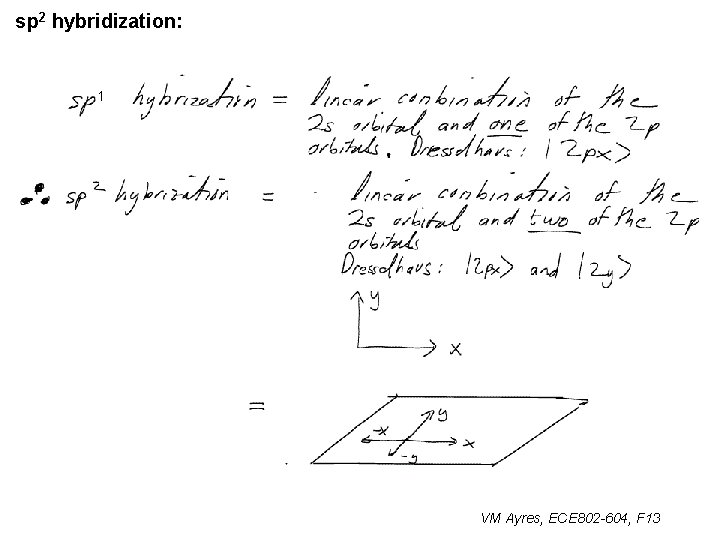 sp² hybridization:
sp¹ hybrization = linear combination of the
2s orbital and one of the 2p
orbitals. Dresselhaus: |2px>
∴ sp² hybrization = linear combination of the
2s orbital and two of the 2p
orbitals
Dresselhaus: |2px> and |2y>
y
x
=
y
-x
x
-y
VM Ayres, ECE802-604, F13